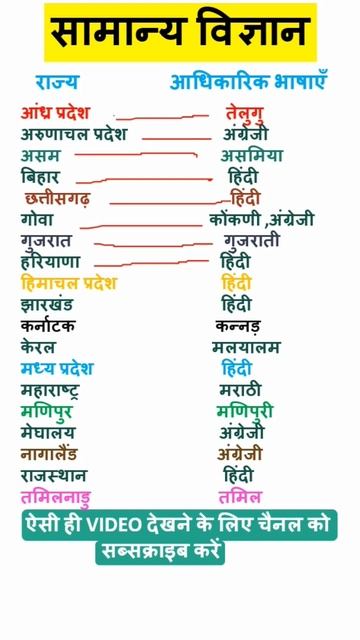 सामान्य विज्ञान
राज्य आधिकारिक भाषाएँ
आंध्र प्रदेश तेलुगु
अरुणाचल प्रदेश अंग्रेजी
असम असमिया
बिहार हिंदी
छत्तीसगढ़ हिंदी
गोवा कोंकणी ,अंग्रेजी
गुजरात गुजराती
हरियाणा हिंदी
हिमाचल प्रदेश हिंदी
झारखंड हिंदी
कर्नाटक कन्नड़
केरल मलयालम
मध्य प्रदेश हिंदी
महाराष्ट्र मराठी
मणिपुर मणिपुरी
मेघालय अंग्रेजी
नागालैंड अंग्रेजी
राजस्थान हिंदी
तमिलनाडु तमिल
ऐसी ही VIDEO देखने के लिए चैनल को
सब्सक्राइब करें